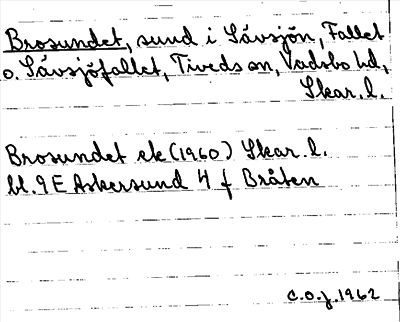 Brosundet, sund i Sävsjön, Fallet
o. Sävsjöfallet, Tiveds sn, Vadsbo hd,
Skar. l.
Brosundet ek (1960) Skar. l.
bl. 9E Askersund 4 f Bråten
C.O.J. 1962